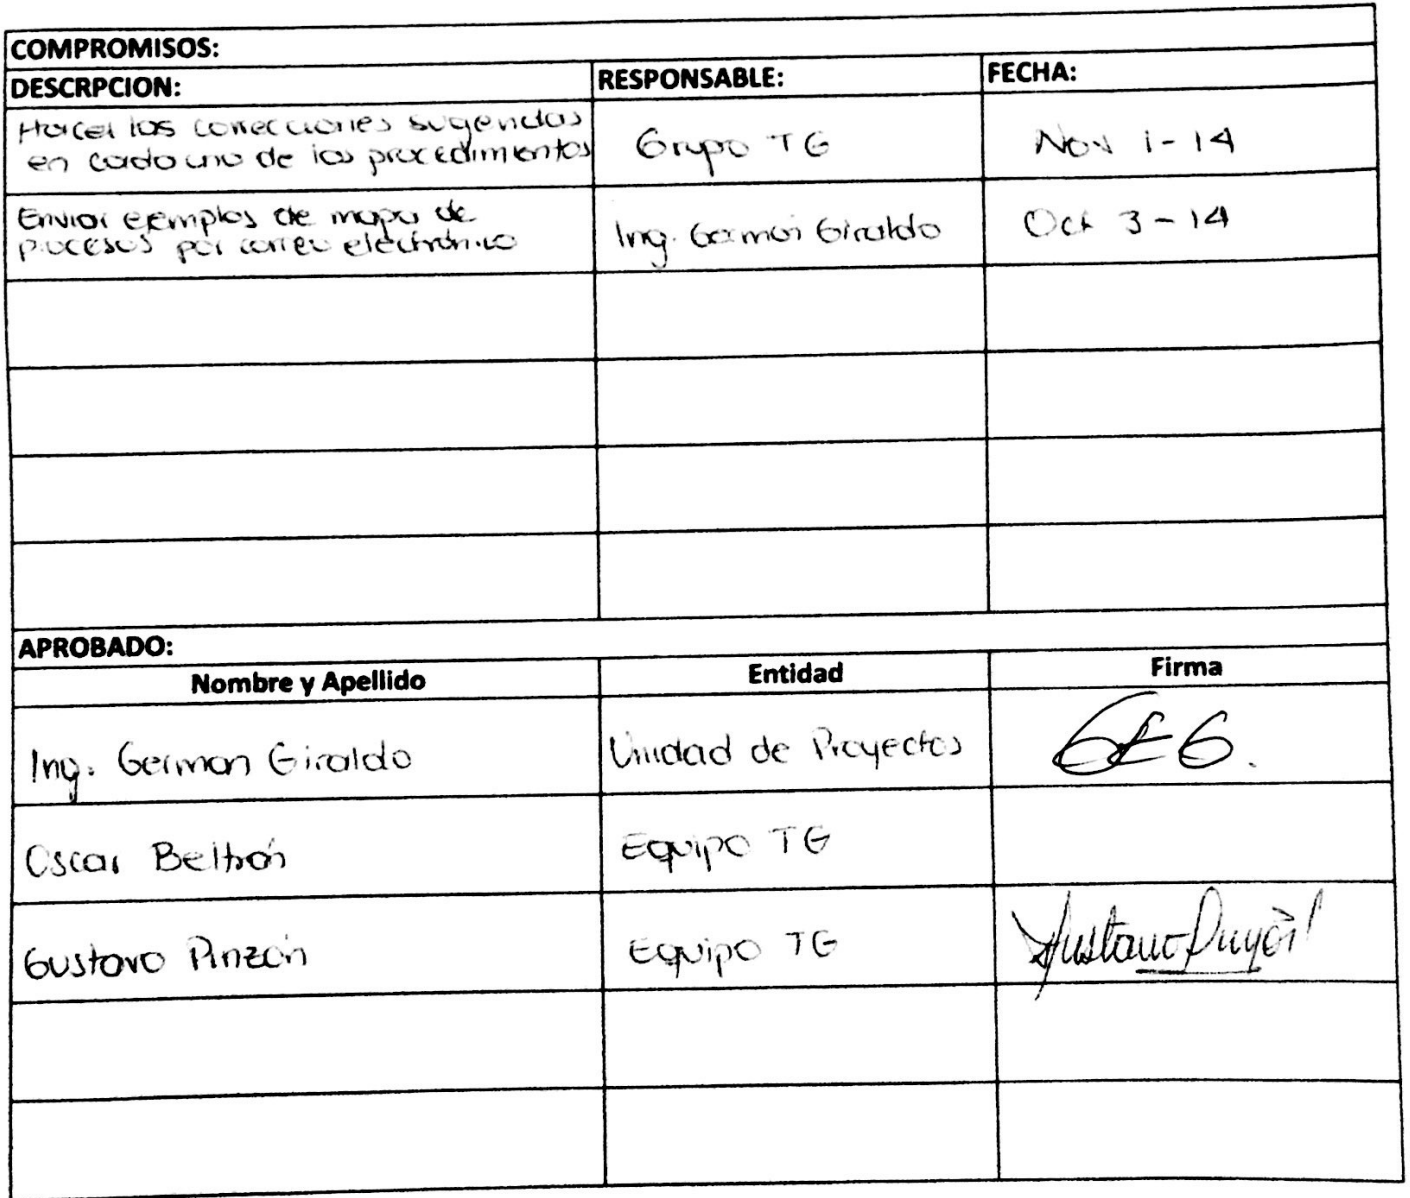 COMPROMISOS:
DESCRPCION: RESPONSABLE: FECHA:
Hacer las correcciones sugeridas
en cada uno de los procedimientos Grupo TG Nov 1-14
Enviar ejemplos de mapa de
procesos por correo electrónico Ing. German Giraldo Oct 3-14
APROBADO:
Nombre y Apellido Entidad Firma
Ing. German Giraldo Unidad de Proyectos
Oscar Beltrán Equipo TG
Gustavo Pinzón Equipo TG